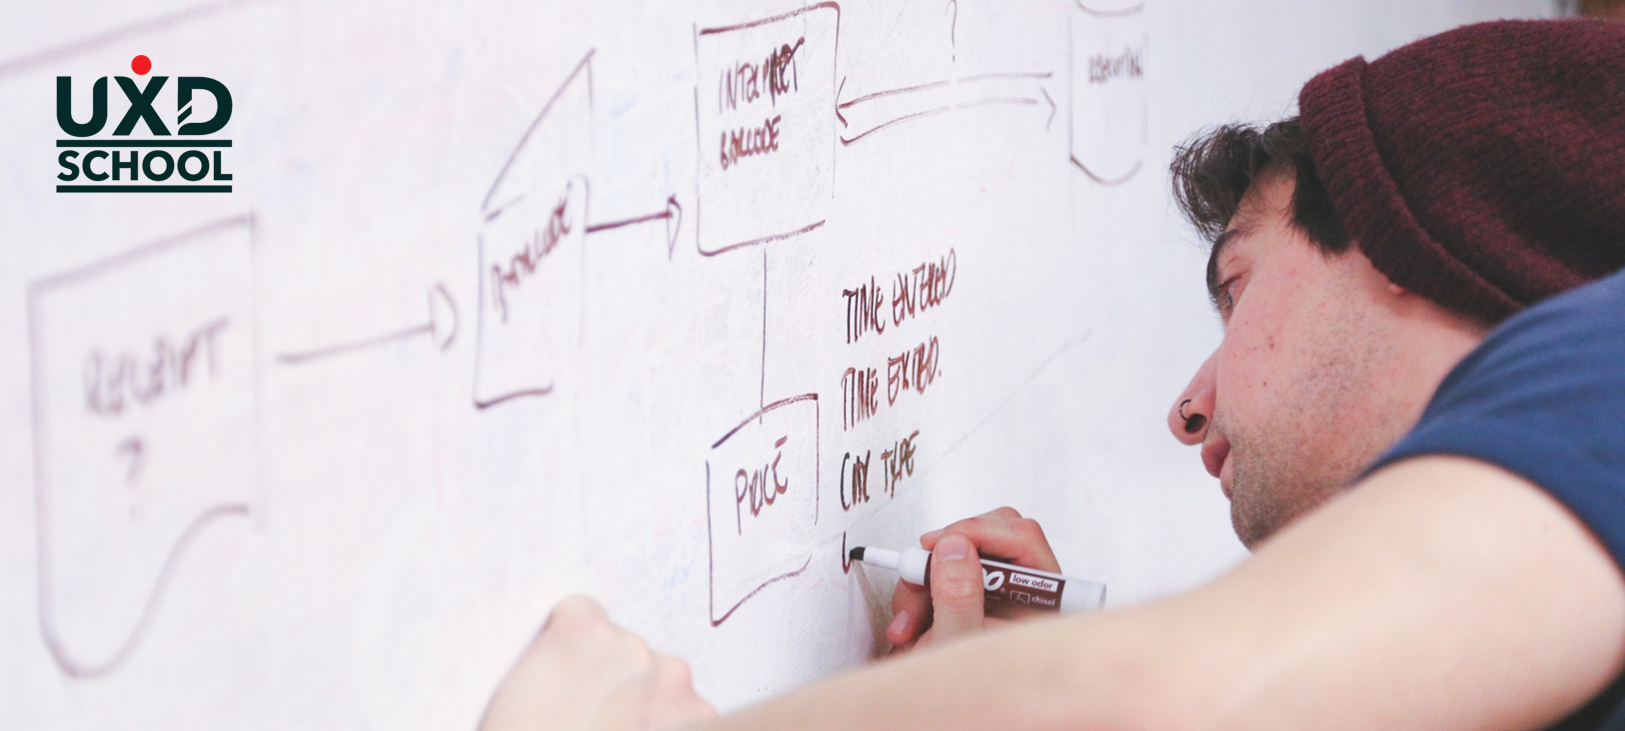 UXD
SCHOOL
RECEIPT
?
BARCODE
INTERPRET
BARCODE
?
PRICE
TIME ENTERED
TIME EXITED.
CAR TYPE
low odor
chisel